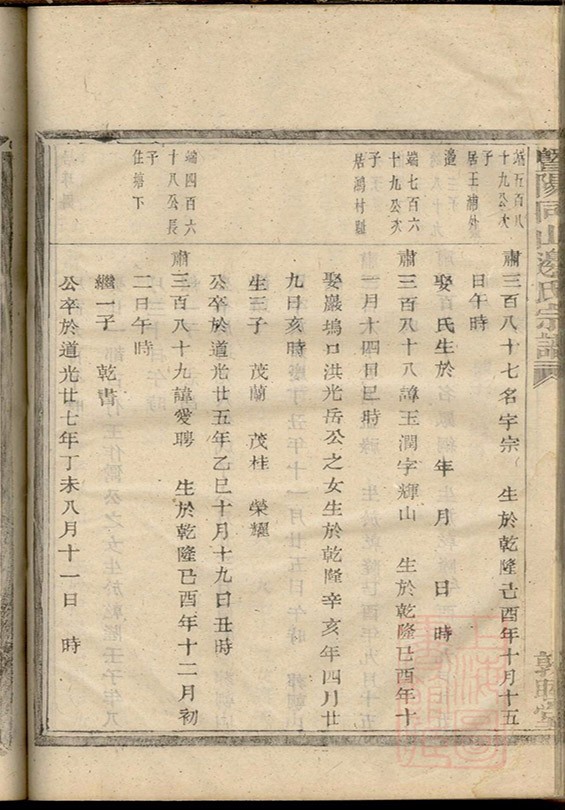 暨陽同山邊氏宗譜
敦睦堂
端五百八
十九公次
子
居王浦外
潼
肅三百八十七名字宗 生於乾隆己酉年十月十五
日午時
娶 氏生於 年 月 日 時
端七百六
十九公次
子
居鴻村
肅三百八十八諱玉潤字輝山 生於乾隆己酉年十
一月十四日巳時
娶巖塢口洪光岳公之女生於乾隆辛亥年四月廿
九日亥時
生三子 茂蘭 茂桂 榮耀
公卒於道光廿五年乙巳十月十九日丑時
端四百六
十八公長
子
住塘下
肅三百八十九諱愛聘 生於乾隆己酉年十二月初
二日午時
繼一子 乾書
公卒於道光廿七年丁未八月十一日 時